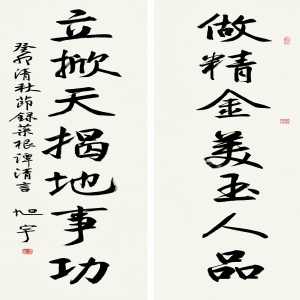 做精金美玉人品
立掀天揭地事功
癸卯清秋節錄菜根譚清言
旭宇